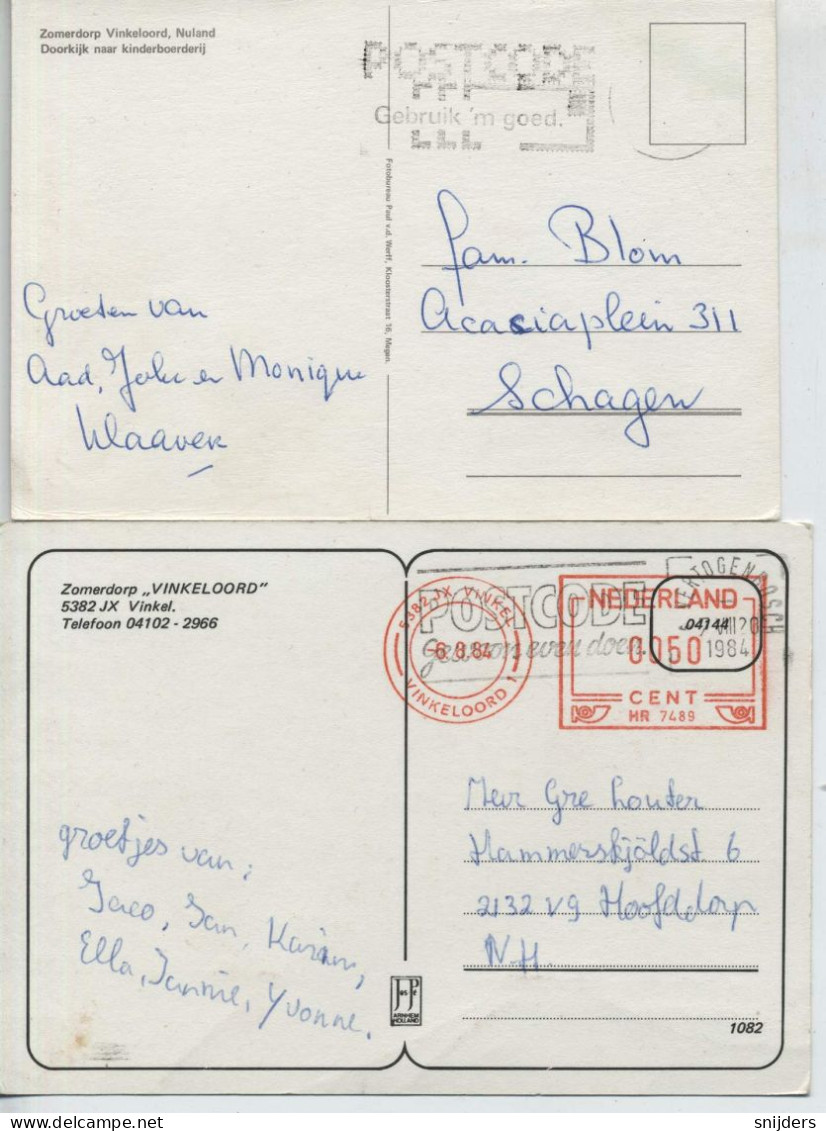 Zomerdorp Vinkeloord, Nuland
Doorkijk naar kinderboerderij
POSTCODE
Gebruik 'm goed.
Fotobureau Paul v.d. Werff, Kloosterstraat 16, Megen.
Groeten van
Aad, Joke en Monique
Klaaver
fam. Blom
Acaciaplein 311
Schagen
Zomerdorp „VINKELOORD”
5382 JX Vinkel.
Telefoon 04102 - 2966
5382 JX VINKEL
6.8.84
VINKELOORD 1
POSTCODE
gewoon even doen.
NEDERLAND
04144
0050
CENT
HR 7489
ERTOGENBOSCH
VIII 20
1984
groetjes van:
Jaco, Jan, Karin,
Ella, Jannie, Yvonne.
Mevr Gre houter
Hammerskjöldst 6
2132 VG Hoofddorp
N.H.
JosPé
ARNHEM
HOLLAND
1082
snijders